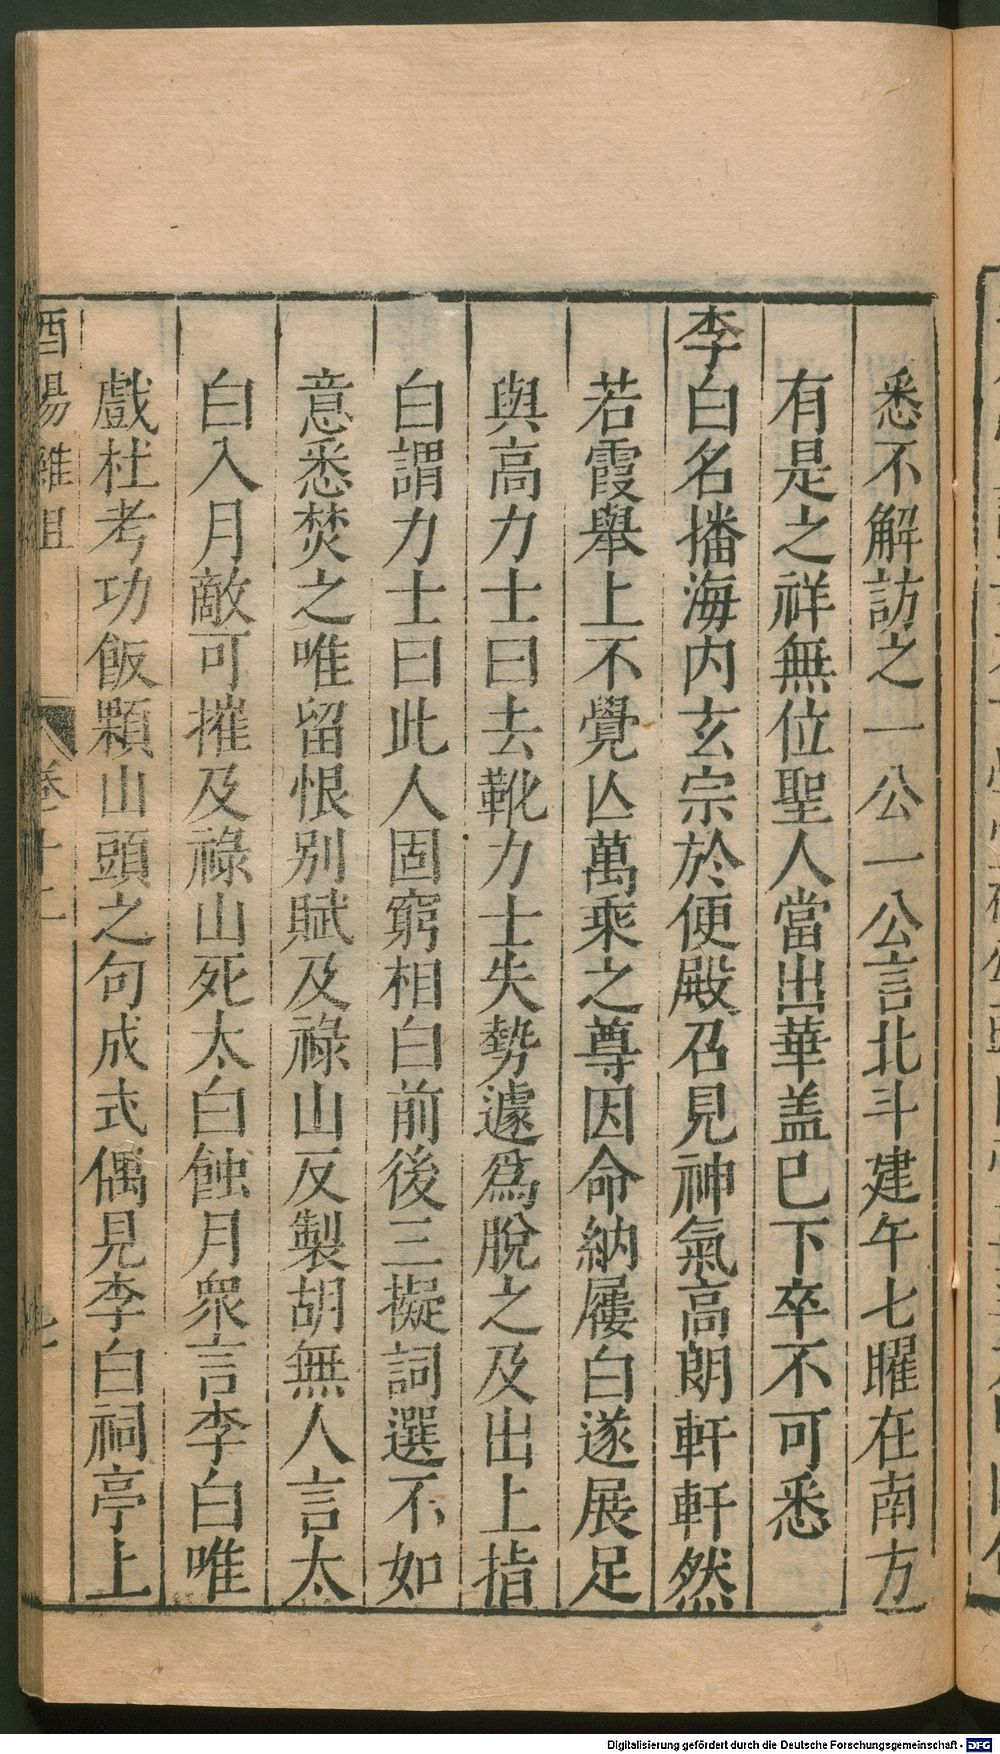 悉不解訪之一公一公言北斗建午七曜在南方
有是之祥無位聖人當出華盖巳下卒不可悉
李白名播海内玄宗於便殿召見神氣高朗軒軒然
若霞舉上不覺亾萬乘之尊因命納屨白遂展足
與高力士曰去靴力士失勢遽爲脫之及出上指
白謂力士曰此人固窮相白前後三擬詞選不如
意悉焚之唯留恨別賦及祿山反製胡無人言太
白入月敵可摧及祿山死太白蝕月衆言李白唯
戲杜考功飯顆山頭之句成式偶見李白祠亭上
酉陽雜俎 卷十二 七
Digitalisierung gefördert durch die Deutsche Forschungsgemeinschaft - DFG